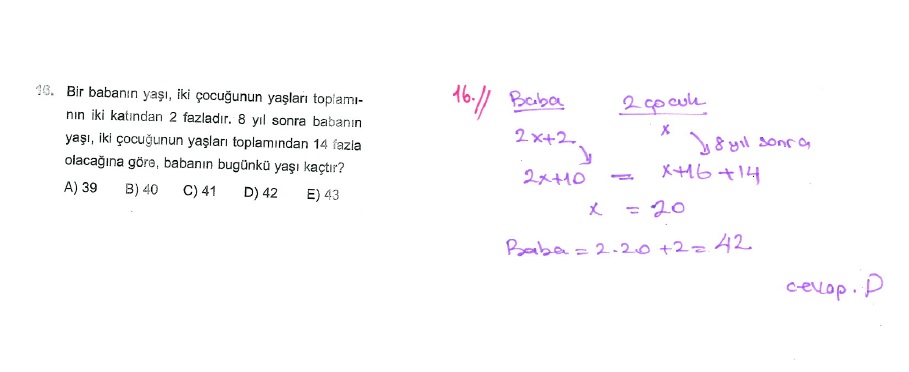 16. Bir babanın yaşı, iki çocuğunun yaşları toplamı-
nın iki katından 2 fazladır. 8 yıl sonra babanın
yaşı, iki çocuğunun yaşları toplamından 14 fazla
olacağına göre, babanın bugünkü yaşı kaçtır?
A) 39 B) 40 C) 41 D) 42 E) 43
16.//
Baba 2 çocuk
2x+2 x
8 yıl sonra
2x+10 = x+16+14
x = 20
Baba = 2.20 +2= 42
cevap. D